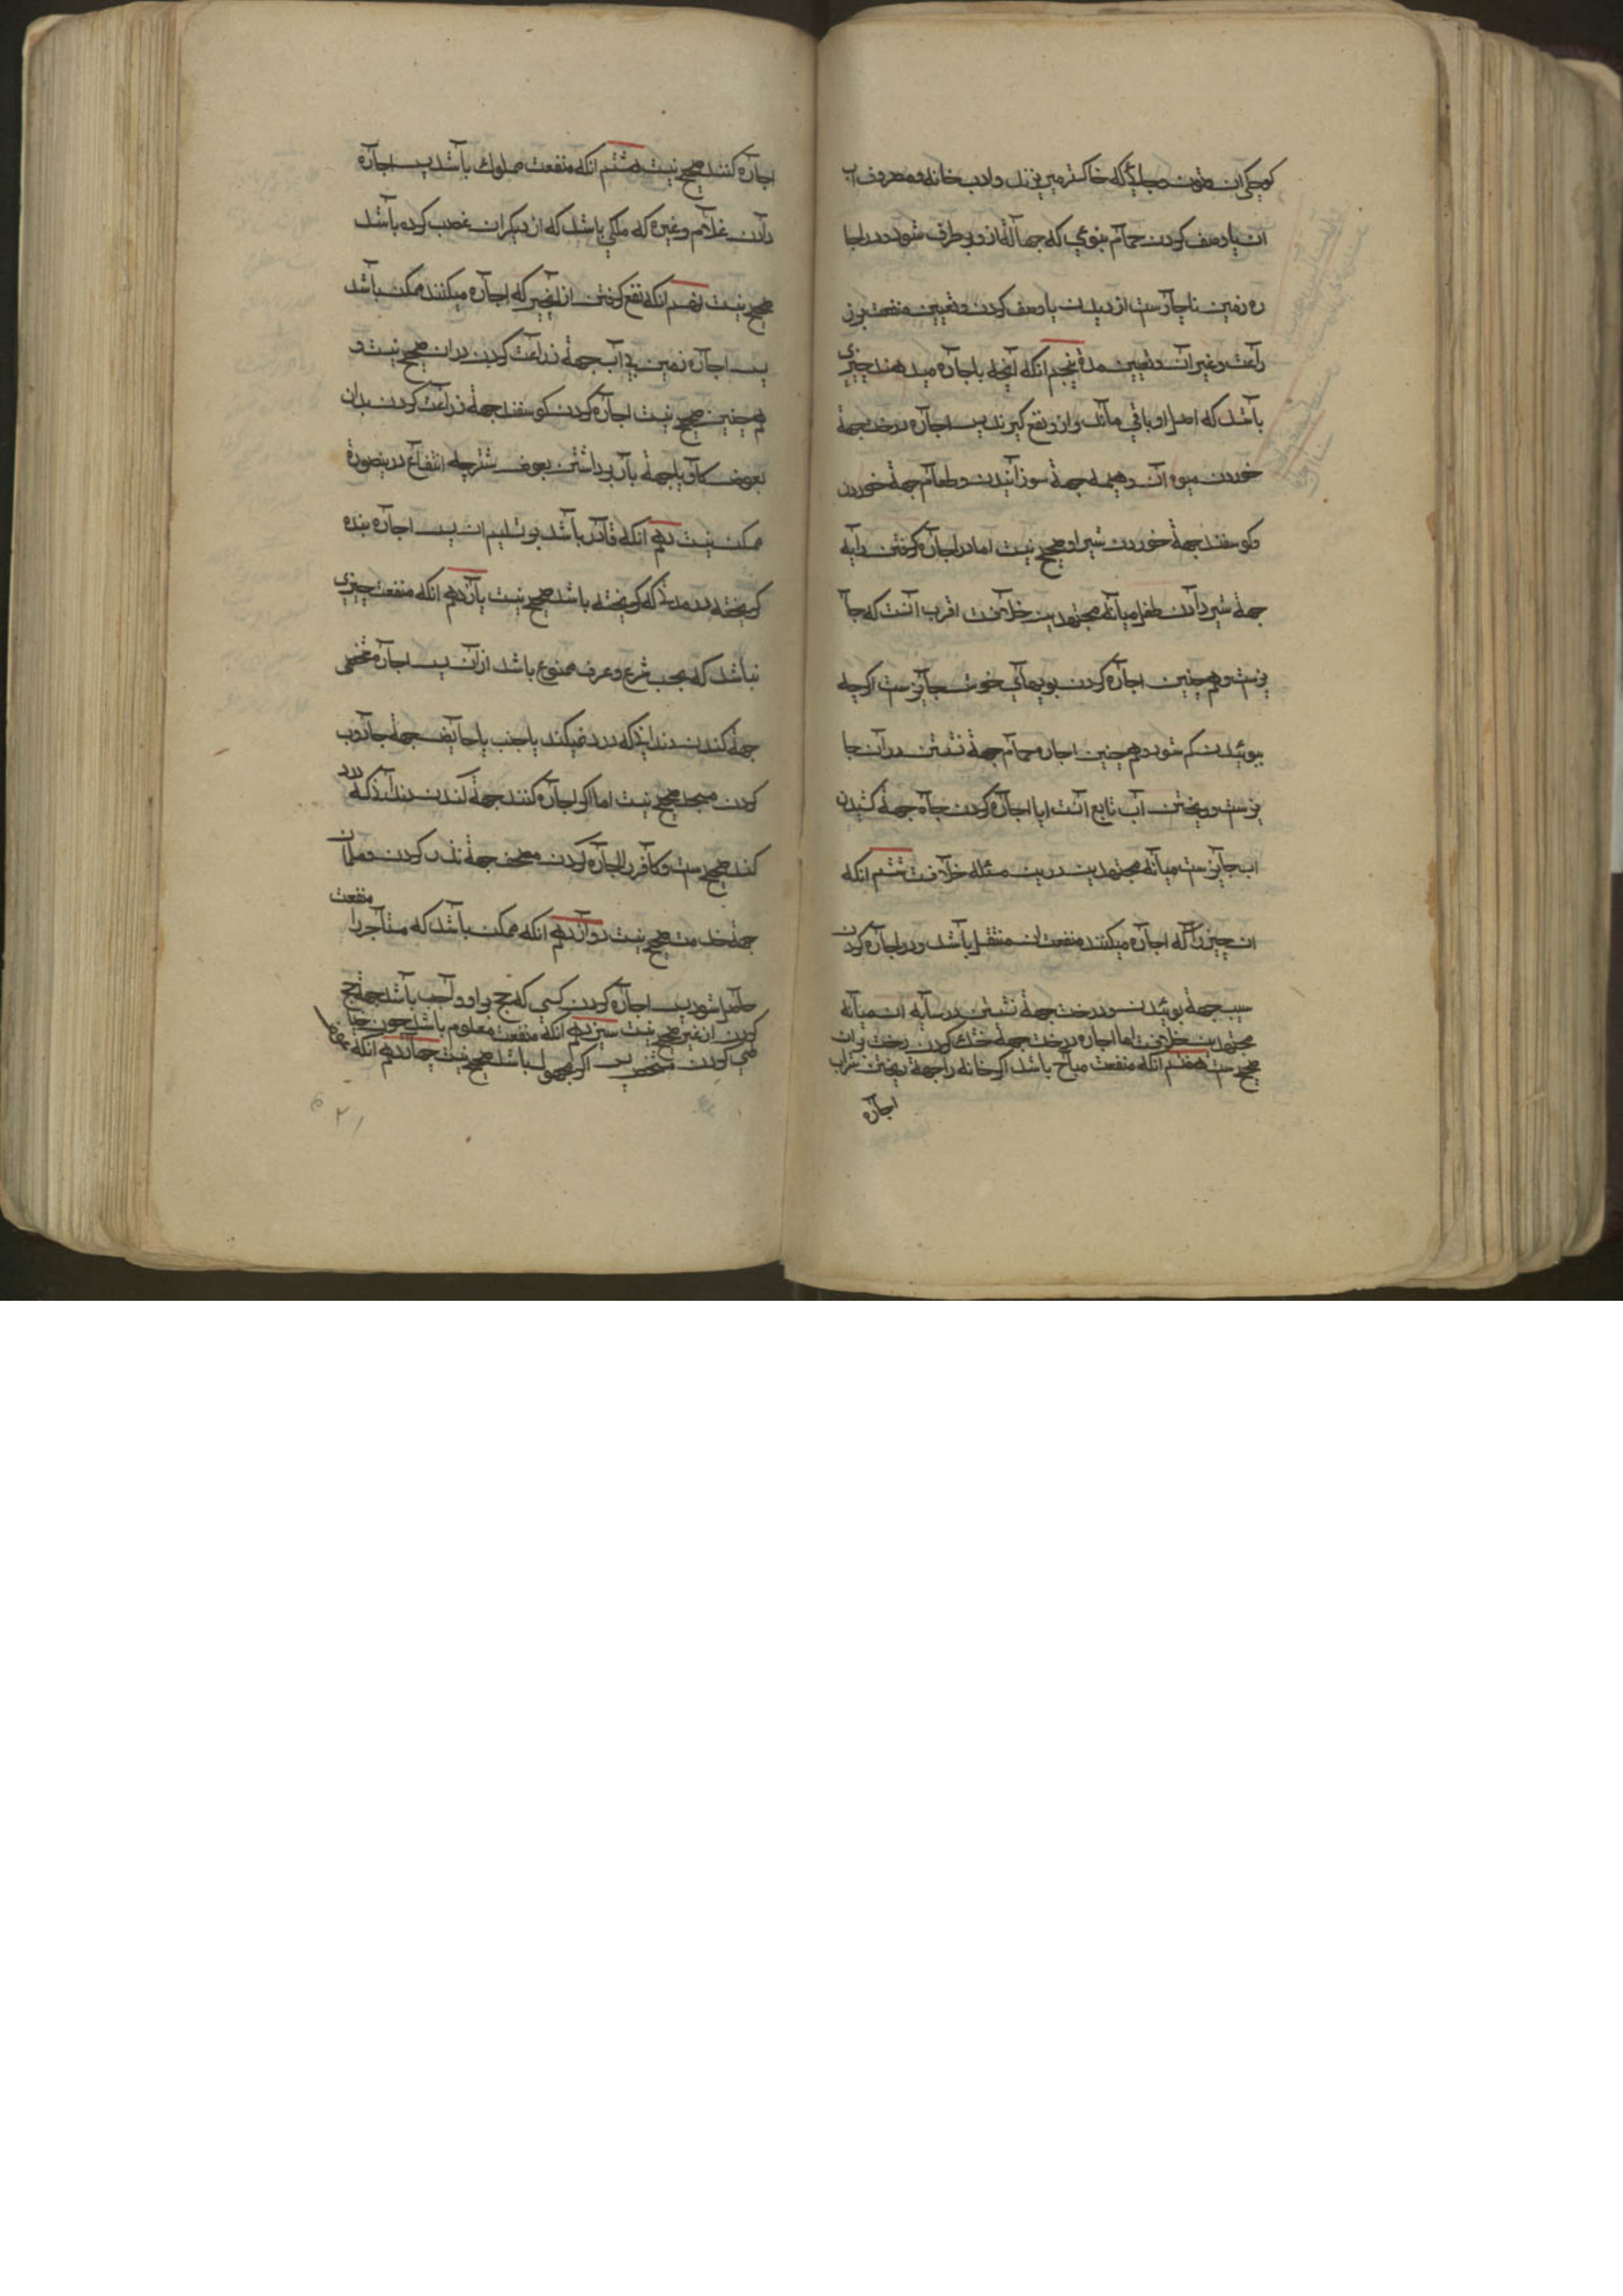 کوچکی ان و تون و جایی که خاکستر میریزند و ادب خانه و مصروف اب
ان یا وصف کردن حمام بنوعی که جهالة ازو برطرف شود و در اجا
ره زمین ناچارست از دیدن یا وصف کردن و تعیین منفعت بز
راعت و غیر آن و تعیین مدة پنجم انکه آنچه باجاره میدهند چیزی
باشد که اصل او باقی ماند و ازو نفع گیرند پس اجاره درخت جهة
خوردن میوه آن و هیمه جهة سوزانیدن و طعام جهة خوردن
و کوسفند جهة خوردن شیر او صحیح نیست اما در اجاره کرفتن دایه
جهة شیر دادن طفل میانه مجتهدین خلافست اقرب آنست که جا
یزست و همچنین اجاره کردن بویهای خوش جایزست اکرچه
ببوئیدن کم شود و همچنین اجاره حمام جهة نشستن در آن جا
یزست و ریختن آب تابع آنست ایا اجاره کردن چاه جهة کشیدن
اب جایزست میانه مجتهدین درین مسئله خلافست ششم انکه
ان چیز را که اجاره میکنند منفعت ان منتقل باشد و در اجاره کردن
سیب جهة بوئیدن و درخت جهة نشستن در سایه ان میانه
مجتهدین خلافست اما اجاره درخت جهة خشک کردن رخت بر ان
صحیح ست هفتم انکه منفعت مباح باشد اکر خانه را جهة ریختن شراب
اجاره
اجاره کنند صحیح نیست هشتم انکه منفعت مملوک باشد پس اجاره
دادن غلام و غیره که ملکی باشد که از دیکران غصب کرده باشد
صحیح نیست نهم انکه نفع کرفتن از انچیز که اجاره میکنند ممکن باشد
پس اجاره زمین بی آب جهة زراعت کردن در ان صحیح نیست و
همچنین صحیح نیست اجاره کردن کوسفند جهة زراعت کردن بدان
بعوض کاو یا جهة بار برداشتن بعوض شتر چه انتفاع درینصورة
ممکن نیست دهم انکه قادر باشد بر تسلیم ان پس اجاره بنده
کریخته در مدتی که کریخته باشد صحیح نیست یازدهم انکه منفعت چیزی
نباشد که بحسب شرع و عرف ممنوع باشد از آن پس اجاره شخصی
جهة کندن دندانی که درد نمیکند یا جنب یا حایض جهة جاروب
کردن مسجد صحیح نیست اما اکر اجاره کنند جهة کندن دندانی که درد
کند صحیح ست و کافر را اجاره کردن مصحف جهة کردن و مسلمان
جهة خدمت صحیح نیست دوازدهم انکه ممکن باشد که مستأجر را منفعت
حاصل شود پس اجاره کردن کسی که حج بر او واجب باشد جهة حج
کردن از غیر صحیح نیست سیزدهم انکه منفعت معلوم باشد چون خیا
طی کردن پس اکر مجهول باشد صحیح نیست چهاردهم انکه
۲۱